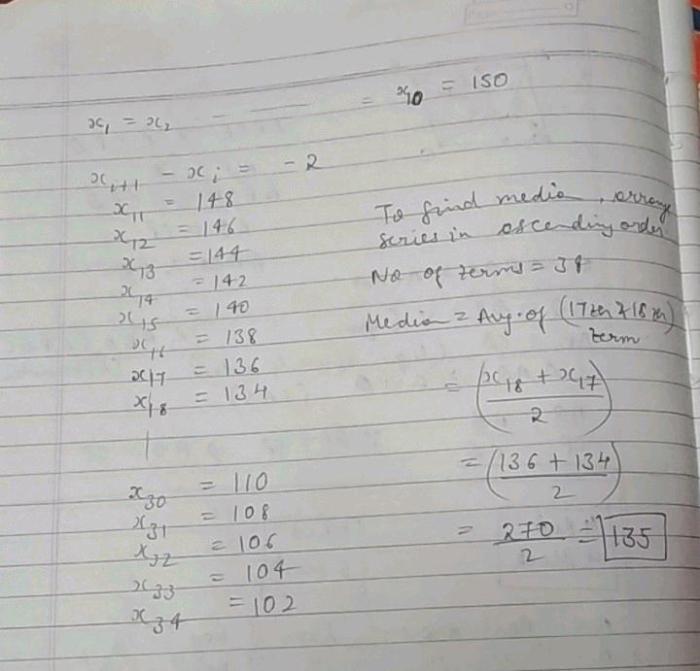 x₁ = x₂ - —— = x₁₀ = 150
xᵢ₊₁ - xᵢ = -2
x₁₁ = 148
x₁₂ = 146
x₁₃ = 144
x₁₄ = 142
x₁₅ = 140
x₁₆ = 138
x₁₇ = 136
x₁₈ = 134
|
x₃₀ = 110
x₃₁ = 108
x₃₂ = 106
x₃₃ = 104
x₃₄ = 102
To find media, arrange
series in ascending order
No of terms = 34
Media = Avg. of (17th & 18th)
term
= (x₁₈ + x₁₇ / 2)
= (136 + 134 / 2)
= 270 / 2 = 135